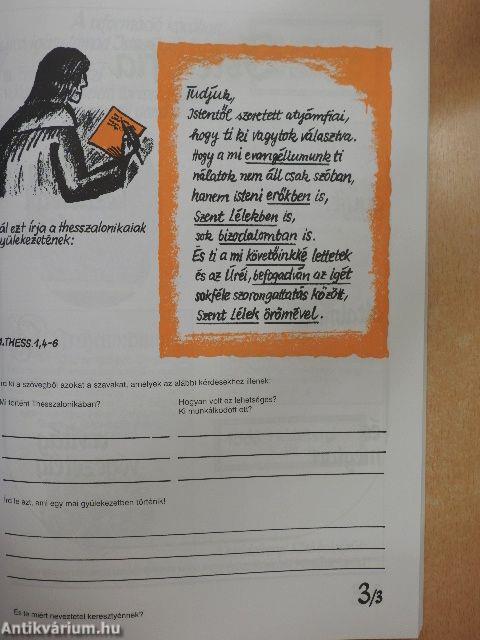 Tudjuk,
Istentől szeretett atyámfiai,
hogy ti ki vagytok választva.
Hogy a mi evangéliumunk ti
nálatok nem áll csak szóban,
hanem isteni erőkben is,
Szent Lélekben is,
sok bizodalomban is.
És ti a mi követőinkké lettetek
és az Úréi, befogadván az igét
sokféle szorongattatás között,
Szent Lélek örömével.
ál ezt írja a thesszalonikaiak
yülekezetének:
.THESS.1,4-6
d ki a szövegből azokat a szavakat, amelyek az alábbi kérdésekhez illenek:
Mi történt Thesszalonikában?
Hogyan volt ez lehetséges?
Ki munkálkodott ott?
Írd le azt, ami egy mai gyülekezetben történik!
3/3
És te miért neveztetel keresztyénnek?
Antikvárium.hu